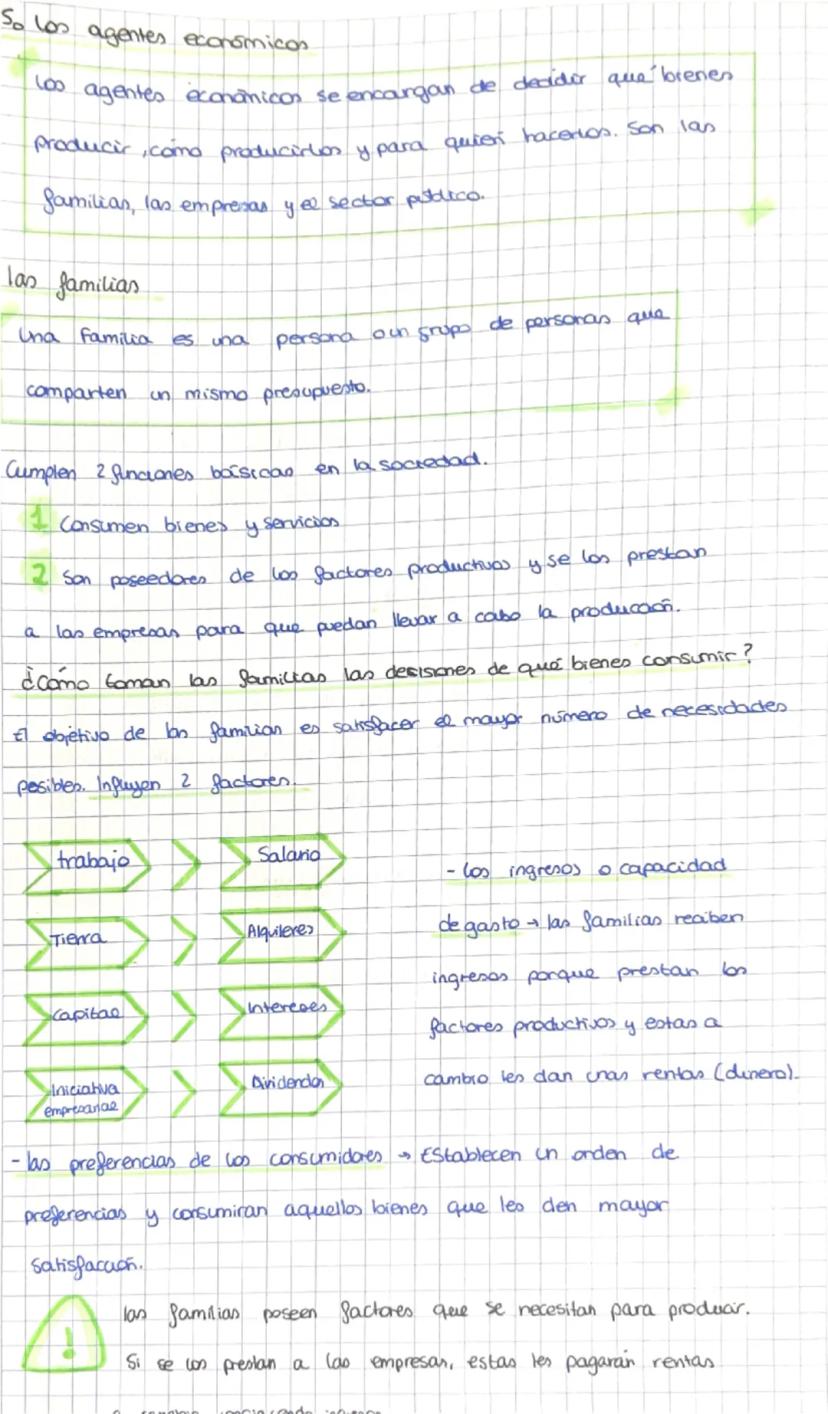 5. Los agentes económicos
Los agentes económicos se encargan de decidir qué bienes
producir, cómo producirlos y para quien hacerlos. Son las
familias, las empresas y el sector público.
las familias
Una familia es una persona o un grupo de personas que
comparten un mismo presupuesto.
Cumplen 2 funciones básicas en la sociedad.
1 Consumen bienes y servicios
2 Son poseedores de los factores productivos y se los prestan
a las empresas para que puedan llevar a cabo la producción.
¿Cómo toman las familias las decisiones de qué bienes consumir?
El objetivo de las familias es satisfacer el mayor número de necesidades
posibles. Influyen 2 factores.
trabajo > Salario
Tierra > Alquileres
Capital > Intereses
Iniciativa empresarial > Dividendos
- los ingresos o capacidad
de gasto → las familias reciben
ingresos porque prestan los
factores productivos y estas a
cambio les dan unas rentas (dinero).
- las preferencias de los consumidores → Establecen un orden de
preferencias y consumiran aquellos bienes que les den mayor
satisfacción.
! las familias poseen factores que se necesitan para producir.
Si se los prestan a las empresas, estas les pagarán rentas